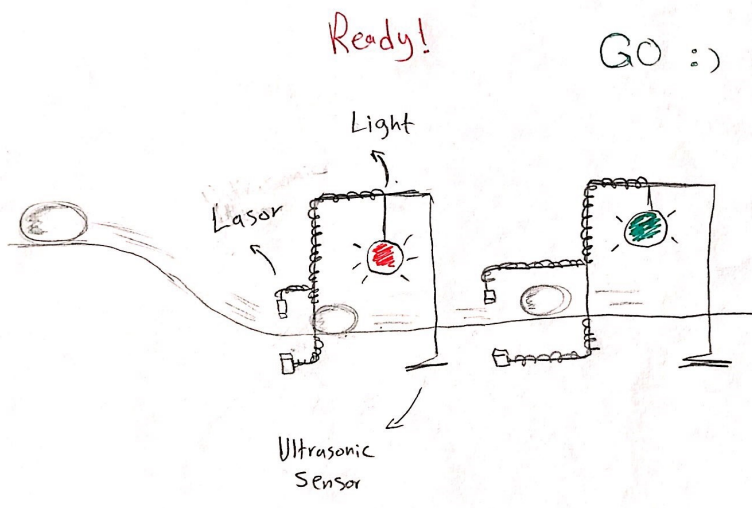 Ready!
GO :)
Light
Lasor
Ultrasonic
Sensor